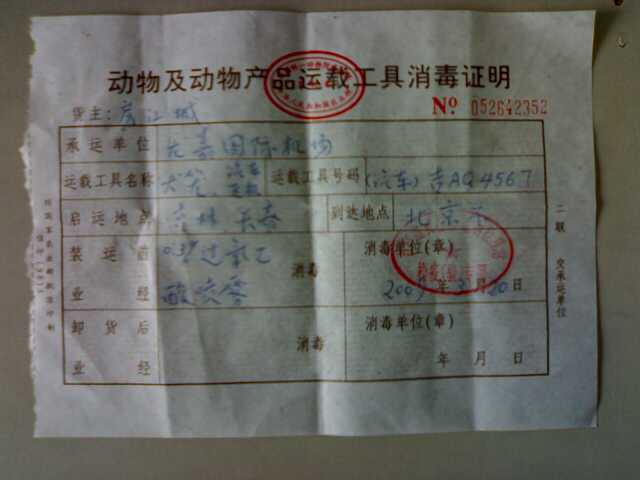 动物及动物产品运载工具消毒证明
货主: 房江城
№ 052642352
承运单位 龙嘉国际机场
运载工具名称 犬笼 汽车 运载工具号码 (汽车)吉AQ4567
启运地点 吉林 长春 到达地点 北京
装运前 0.3%过氧乙 消毒 消毒单位(章)
业经 酸喷雾 2009年3月20日
卸货后 消毒 消毒单位(章)
业经 年 月 日
二联 交承运单位